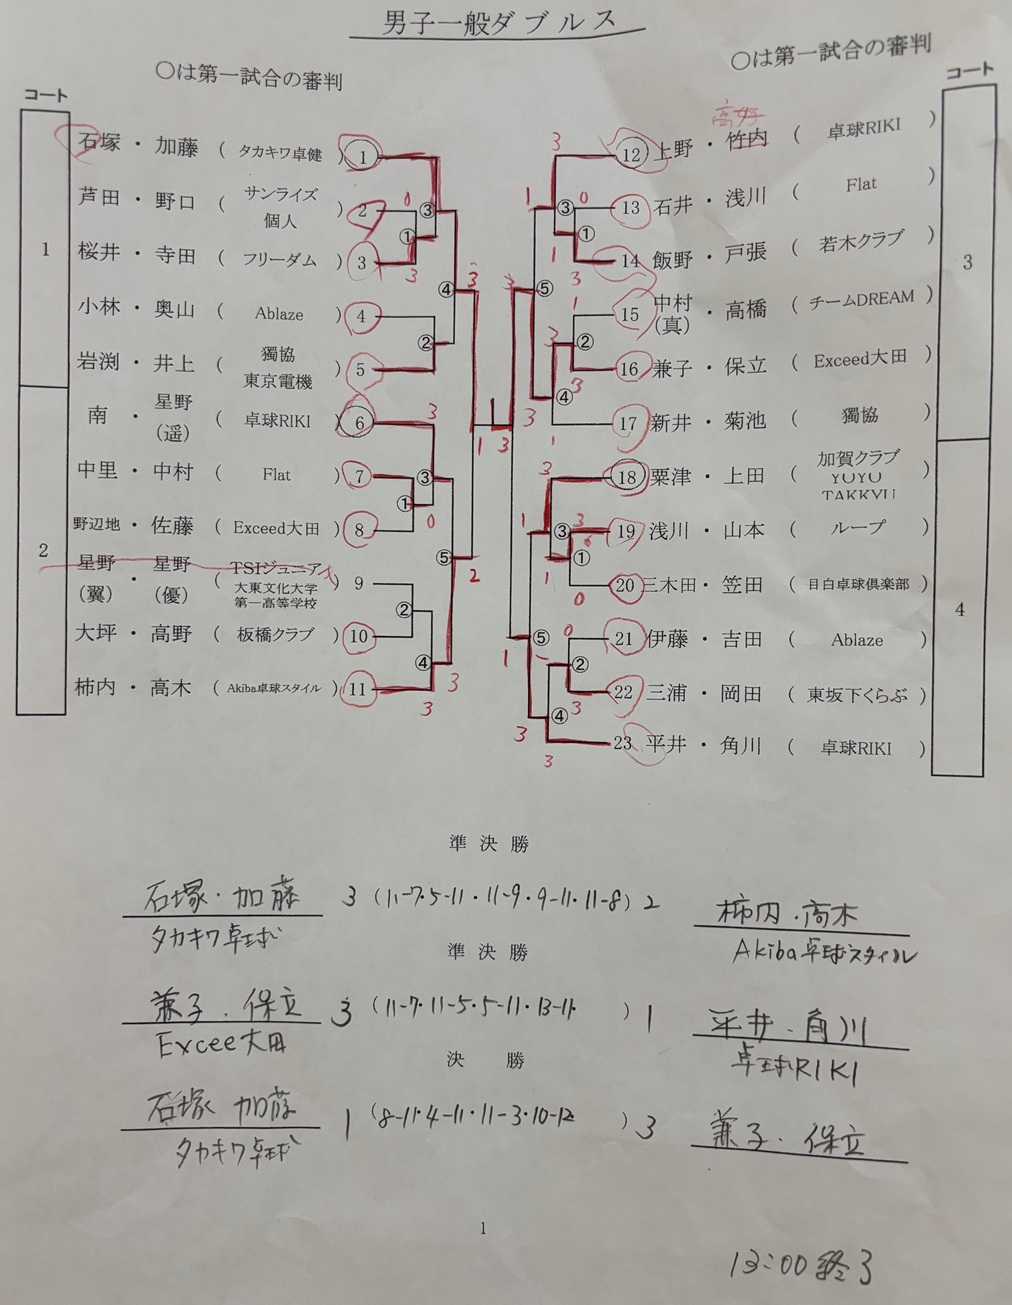 男子一般ダブルス
〇は第一試合の審判
〇は第一試合の審判
コート
コート
1
2
3
4
石塚・加藤 ( タカキワ卓健 ) 1
芦田・野口 ( サンライズ 個人 ) 2
桜井・寺田 ( フリーダム ) 3
小林・奥山 ( Ablaze ) 4
岩渕・井上 ( 獨協 東京電機 ) 5
南・星野(遥) ( 卓球RIKI ) 6
中里・中村 ( Flat ) 7
野辺地・佐藤 ( Exceed大田 ) 8
星野(翼)・星野(優) ( TSIジュニア 大東文化大学第一高等学校 ) 9
大坪・高野 ( 板橋クラブ ) 10
柿内・高木 ( Akiba卓球スタイル ) 11
高野
12 上野・竹内 ( 卓球RIKI )
13 石井・浅川 ( Flat )
14 飯野・戸張 ( 若木クラブ )
15 中村(真)・高橋 ( チームDREAM )
16 兼子・保立 ( Exceed大田 )
17 新井・菊池 ( 獨協 )
18 粟津・上田 ( 加賀クラブ YOYO TAKKYU )
19 浅川・山本 ( ループ )
20 三木田・笠田 ( 目白卓球倶楽部 )
21 伊藤・吉田 ( Ablaze )
22 三浦・岡田 ( 東坂下くらぶ )
23 平井・角川 ( 卓球RIKI )
準決勝
石塚・加藤 3 (11-7・5-11・11-9・9-11・11-8) 2 柿内・高木
タカキワ卓球 Akiba卓球スタイル
準決勝
兼子・保立 3 (11-7・11-5・5-11・13-11・ ) 1 平井・角川
Excee大田 卓球RIKI
決勝
石塚 加藤 1 (8-11・4-11・11-3・10-12 ) 3 兼子・保立
タカキワ卓球
1
13:00終了